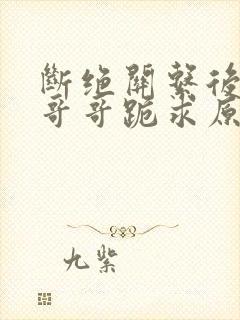 斷绝關繫後
哥哥跪求原
九紫